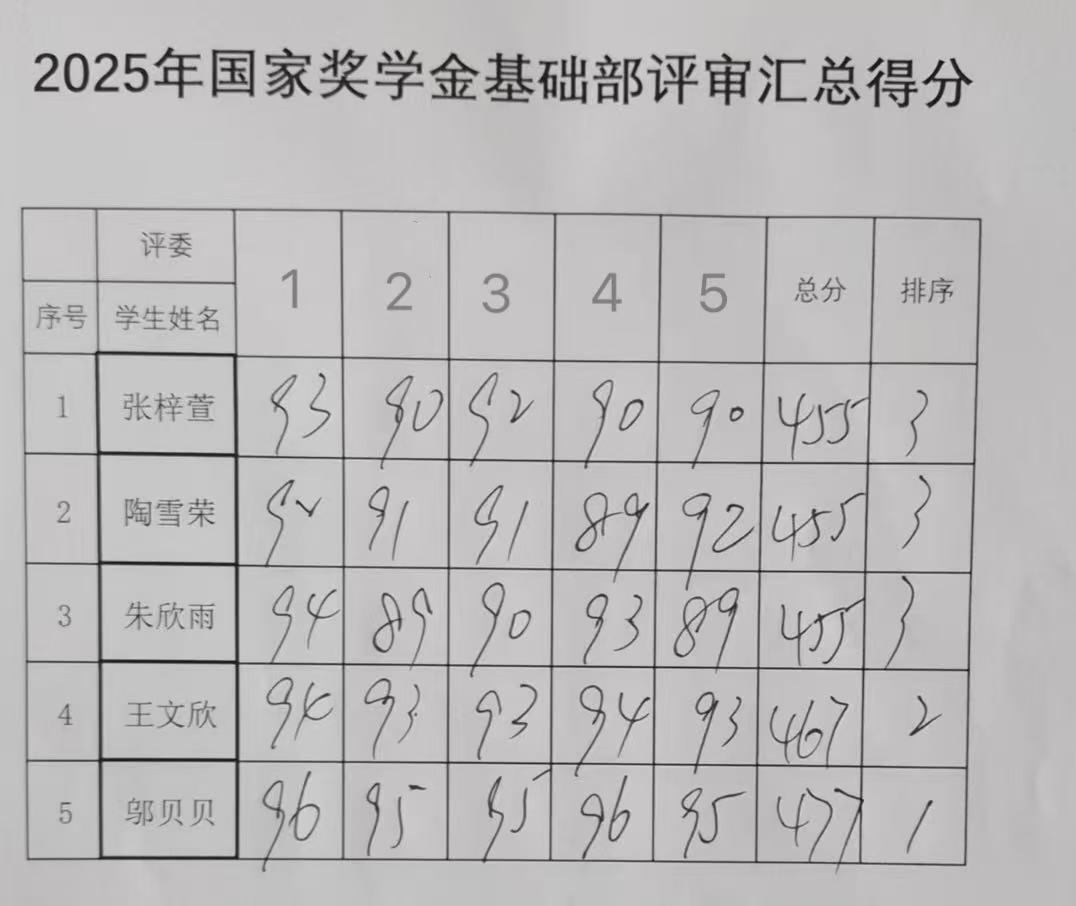 2025年国家奖学金基础部评审汇总得分
评委 1 2 3 4 5 总分 排序
序号 学生姓名
1 张梓萱 93 90 92 90 90 455 3
2 陶雪荣 92 91 91 89 92 455 3
3 朱欣雨 94 89 90 93 89 455 3
4 王文欣 94 93 93 94 93 467 2
5 邬贝贝 96 95 95 96 95 477 1